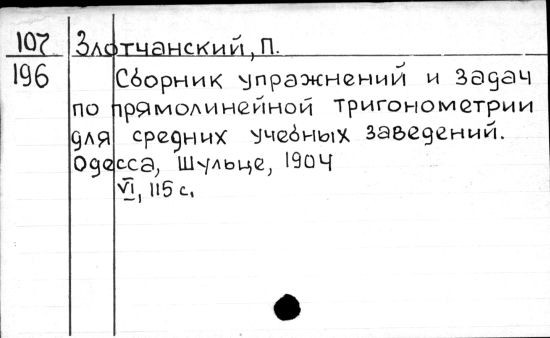 107 Злотчанский, П.
196 Сборник упражнений и задач
по прямолинейной тригонометрии
для средних учебных заведений.
Одесса, Шульце, 1904
VI, 115 с.